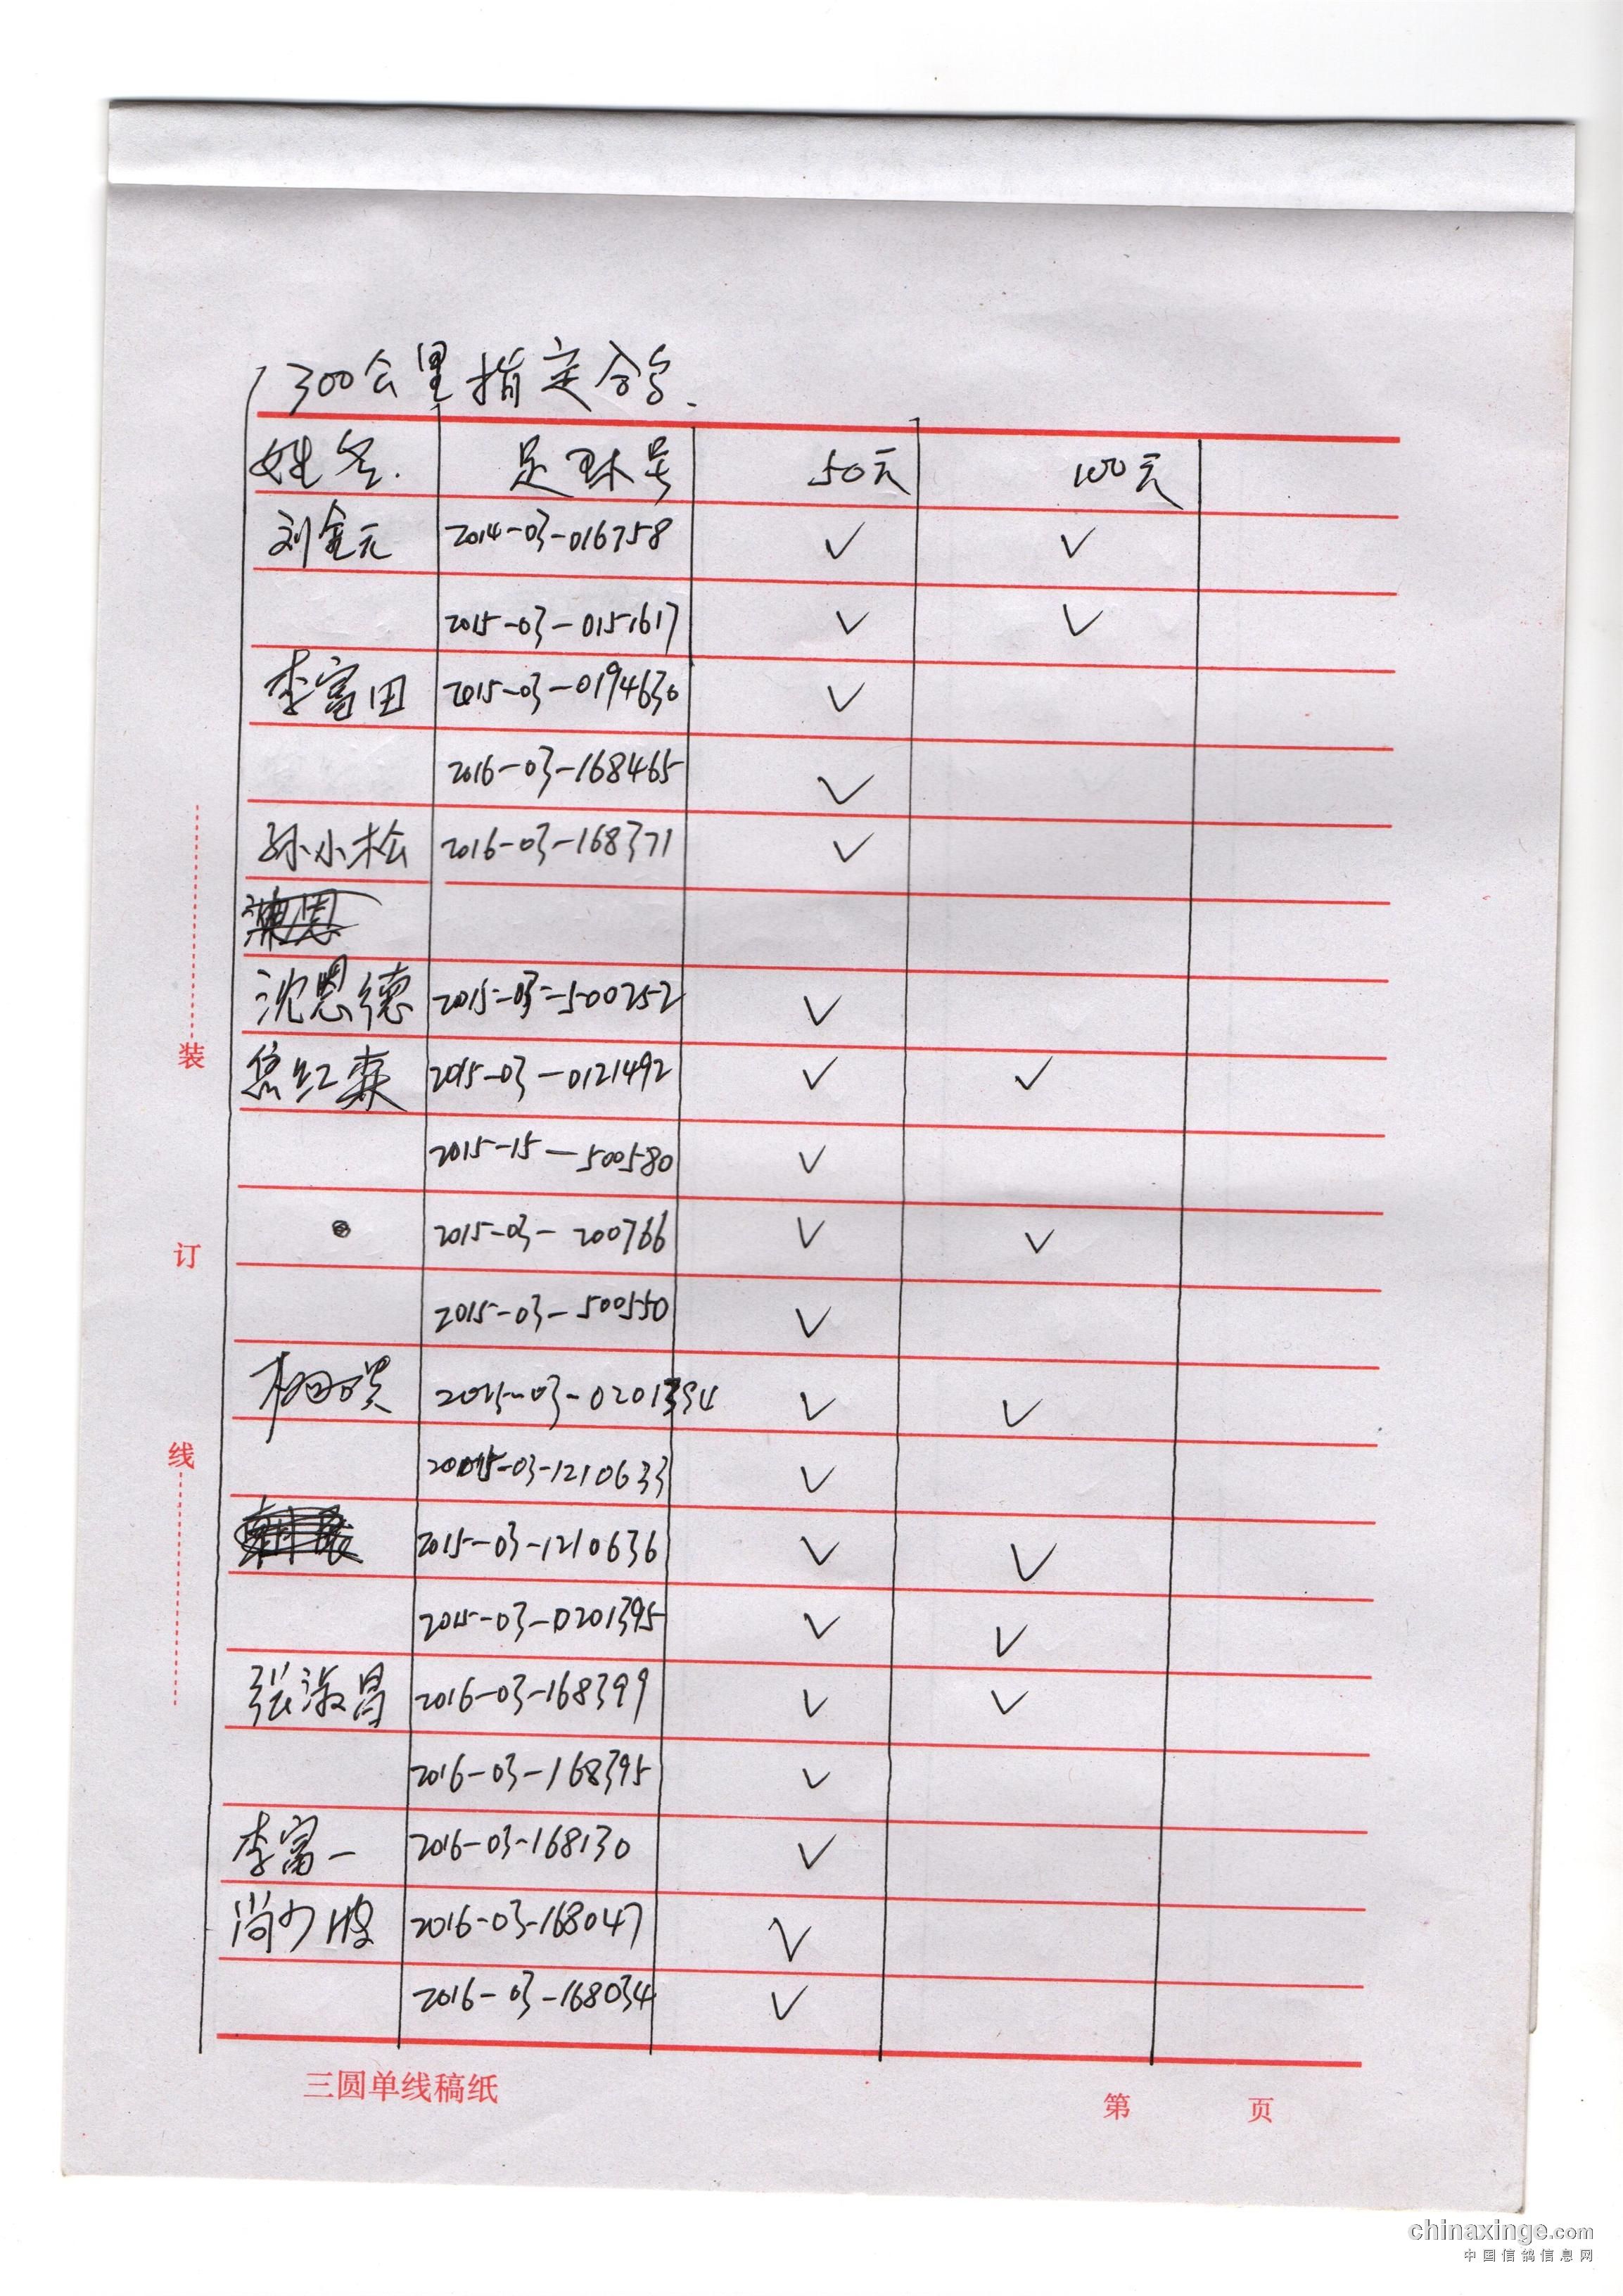 300公里指定鸽.
姓名. 足环号 50元 100元
刘金元 2014-03-016758 ✓ ✓
2015-03-0151617 ✓ ✓
李富田 2015-03-0194630 ✓
2016-03-168465 ✓
孙小松 2016-03-168371 ✓
沈恩德 2015-03-500252 ✓
红森 2015-03-0121492 ✓ ✓
2015-15-500580 ✓
2015-03-200766 ✓ ✓
2015-03-500550 ✓
2015-03-0201394 ✓ ✓
2015-03-1210633 ✓
2015-03-1210636 ✓ ✓
2015-03-0201395 ✓ ✓
张淑昌 2016-03-168399 ✓ ✓
2016-03-168395 ✓
李富一 2016-03-168130 ✓
尚少波 2016-03-168047 ✓
2016-03-168034 ✓
装
订
线
三圆单线稿纸 第 页
chinaxinge.com
中国信鸽信息网